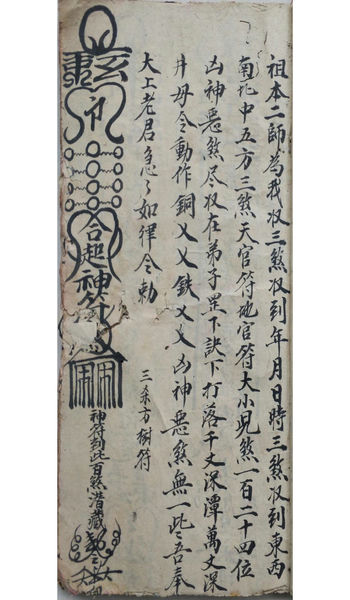 祖本二師為我收三煞收到年月日時三煞收到東西
南北中五方三煞天官符地官符大小児煞一百二十四位
凶神惡煞尽收在弟子罡下訣下打落千丈深潭萬丈深
井毋令動作銅乂乂鉄乂乂凶神惡煞無一些吾奉
大上老君急々如律令勅
三杀方樹符
合起神符
神符到此百煞潜藏